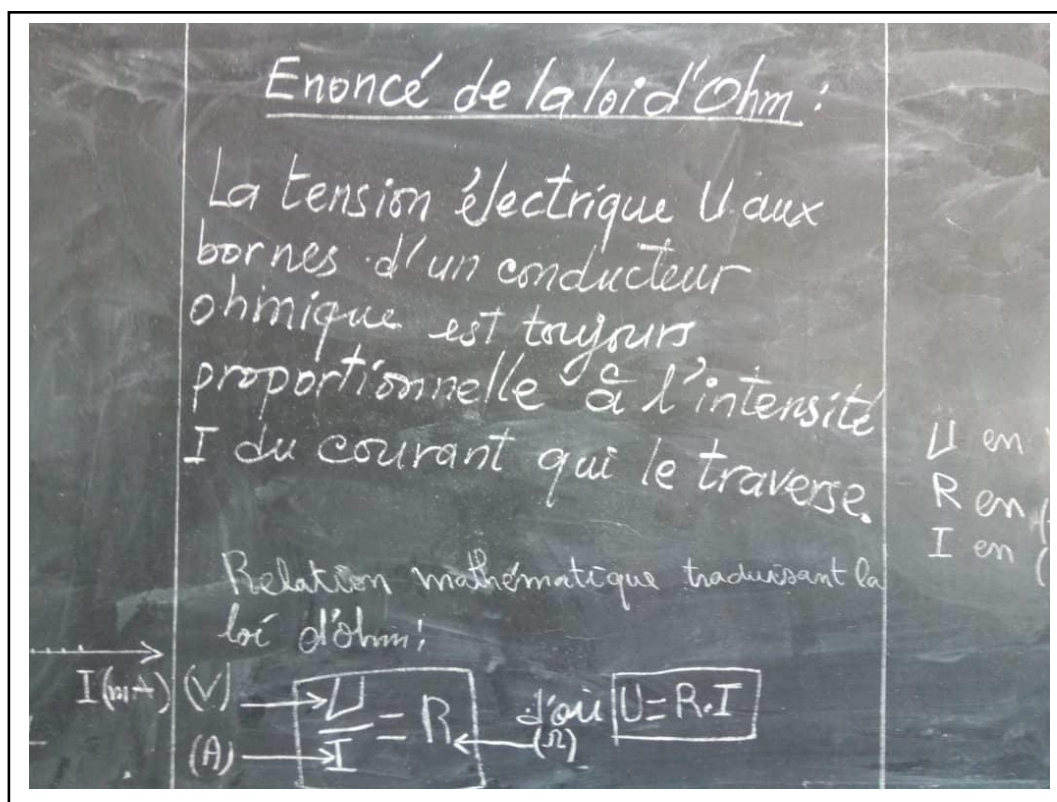 Enoncé de la loi d'Ohm :
La tension électrique U aux
bornes d'un conducteur
ohmique est toujours
proportionnelle à l'intensité
I du courant qui le traverse.
Relation mathématique traduisant la
loi d'Ohm :
I(mA)
(V) U/I = R d'où U = R.I
(A) (Ω)
U en
R en (
I en (